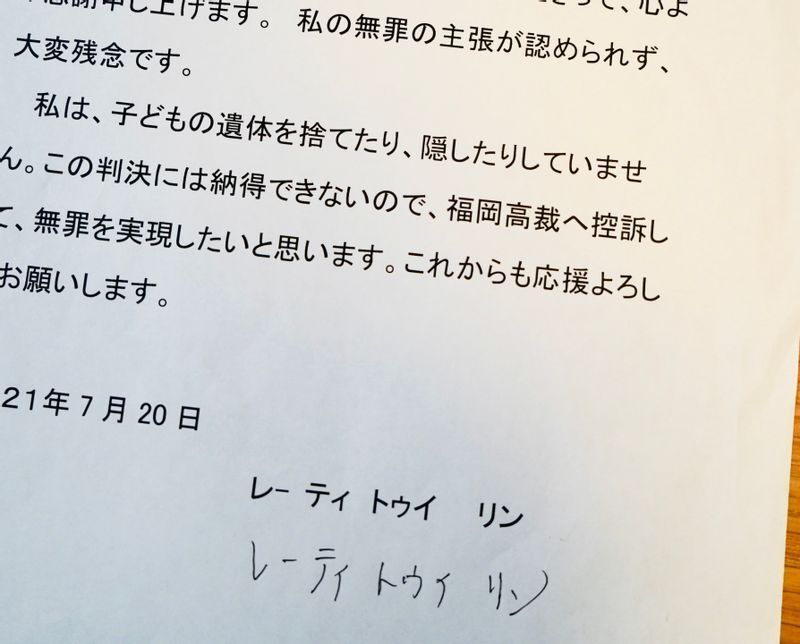 感謝申し上げます。 私の無罪の主張が認められず、
大変残念です。
私は、子どもの遺体を捨てたり、隠したりしていませ
ん。この判決には納得できないので、福岡高裁へ控訴し
て、無罪を実現したいと思います。これからも応援よろし
お願いします。
21年 7 月 20 日
レー ティ トゥイ リン
レーティ トゥイ リン